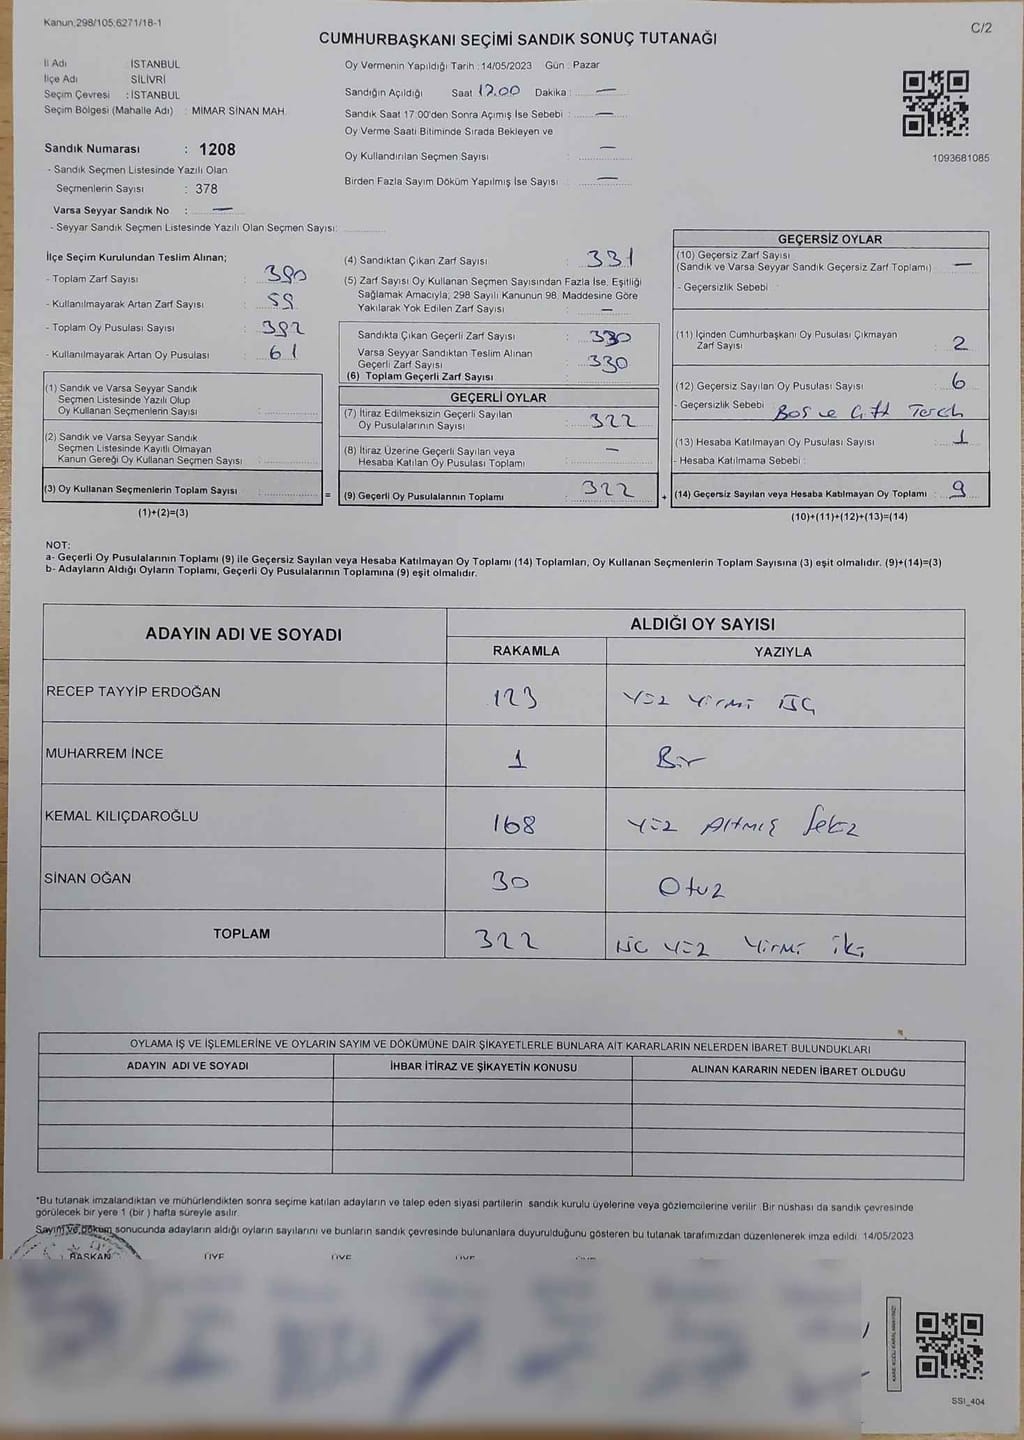 Kanun;298/105;6271/18-1
C/2
CUMHURBAŞKANI SEÇİMİ SANDIK SONUÇ TUTANAĞI
İl Adı : İSTANBUL
İlçe Adı : SİLİVRİ
Seçim Çevresi : İSTANBUL
Seçim Bölgesi (Mahalle Adı) : MİMAR SİNAN MAH.
Sandık Numarası : 1208
- Sandık Seçmen Listesinde Yazılı Olan
Seçmenlerin Sayısı : 378
Varsa Seyyar Sandık No : —
- Seyyar Sandık Seçmen Listesinde Yazılı Olan Seçmen Sayısı:
Oy Vermenin Yapıldığı Tarih : 14/05/2023 Gün : Pazar
Sandığın Açıldığı Saat 17.00 Dakika : —
Sandık Saat 17:00'den Sonra Açımış İse Sebebi : —
Oy Verme Saati Bitiminde Sırada Bekleyen ve
Oy Kullandırılan Seçmen Sayısı : —
Birden Fazla Sayım Döküm Yapılmış İse Sayısı : —
1093681085
İlçe Seçim Kurulundan Teslim Alınan;
- Toplam Zarf Sayısı : 390
- Kullanılmayarak Artan Zarf Sayısı : 59
- Toplam Oy Pusulası Sayısı : 392
- Kullanılmayarak Artan Oy Pusulası : 61
(1) Sandık ve Varsa Seyyar Sandık
Seçmen Listesinde Yazılı Olup
Oy Kullanan Seçmenlerin Sayısı :
(2) Sandık ve Varsa Seyyar Sandık
Seçmen Listesinde Kayıtlı Olmayan
Kanun Gereği Oy Kullanan Seçmen Sayısı :
(3) Oy Kullanan Seçmenlerin Toplam Sayısı :
(1)+(2)=(3)
=
(4) Sandıktan Çıkan Zarf Sayısı : 331
(5) Zarf Sayısı Oy Kullanan Seçmen Sayısından Fazla İse, Eşitliği
Sağlamak Amacıyla, 298 Sayılı Kanunun 98. Maddesine Göre
Yakılarak Yok Edilen Zarf Sayısı : —
Sandıkta Çıkan Geçerli Zarf Sayısı : 330
Varsa Seyyar Sandıktan Teslim Alınan
Geçerli Zarf Sayısı : 330
(6) Toplam Geçerli Zarf Sayısı :
GEÇERLİ OYLAR
(7) İtiraz Edilmeksizin Geçerli Sayılan
Oy Pusulalarının Sayısı : 322
(8) İtiraz Üzerine Geçerli Sayılan veya
Hesaba Katılan Oy Pusulası Toplamı : —
(9) Geçerli Oy Pusulalarının Toplamı : 322
+
GEÇERSİZ OYLAR
(10) Geçersiz Zarf Sayısı
(Sandık ve Varsa Seyyar Sandık Geçersiz Zarf Toplamı) : —
- Geçersizlik Sebebi :
(11) İçinden Cumhurbaşkanı Oy Pusulası Çıkmayan
Zarf Sayısı : 2
(12) Geçersiz Sayılan Oy Pusulası Sayısı : 6
- Geçersizlik Sebebi : Boş ve Çift Tercih
(13) Hesaba Katılmayan Oy Pusulası Sayısı : 1
- Hesaba Katılmama Sebebi :
(14) Geçersiz Sayılan veya Hesaba Katılmayan Oy Toplamı : 9
(10)+(11)+(12)+(13)=(14)
NOT:
a- Geçerli Oy Pusulalarının Toplamı (9) ile Geçersiz Sayılan veya Hesaba Katılmayan Oy Toplamı (14) Toplamları, Oy Kullanan Seçmenlerin Toplam Sayısına (3) eşit olmalıdır. (9)+(14)=(3)
b- Adayların Aldığı Oyların Toplamı, Geçerli Oy Pusulalarının Toplamına (9) eşit olmalıdır.
ADAYIN ADI VE SOYADI
ALDIĞI OY SAYISI
RAKAMLA
YAZIYLA
RECEP TAYYİP ERDOĞAN 123 Yüz Yirmi Üç
MUHARREM İNCE 1 Bir
KEMAL KILIÇDAROĞLU 168 Yüz Altmış Sekiz
SİNAN OĞAN 30 Otuz
TOPLAM 322 Üç Yüz Yirmi iki
OYLAMA İŞ VE İŞLEMLERİNE VE OYLARIN SAYIM VE DÖKÜMÜNE DAİR ŞİKAYETLERLE BUNLARA AİT KARARLARIN NELERDEN İBARET BULUNDUKLARI
ADAYIN ADI VE SOYADI
İHBAR İTİRAZ VE ŞİKAYETİN KONUSU
ALINAN KARARIN NEDEN İBARET OLDUĞU
*Bu tutanak imzalandıktan ve mühürlendikten sonra seçime katılan adayların ve talep eden siyasi partilerin sandık kurulu üyelerine veya gözlemcilerine verilir. Bir nüshası da sandık çevresinde
görülecek bir yere 1 (bir ) hafta süreyle asılır.
Sayım ve döküm sonucunda adayların aldığı oyların sayılarını ve bunların sandık çevresinde bulunanlara duyurulduğunu gösteren bu tutanak tarafımızdan düzenlenerek imza edildi. 14/05/2023
BAŞKAN ÜYE ÜYE ÜYE
SSI_404